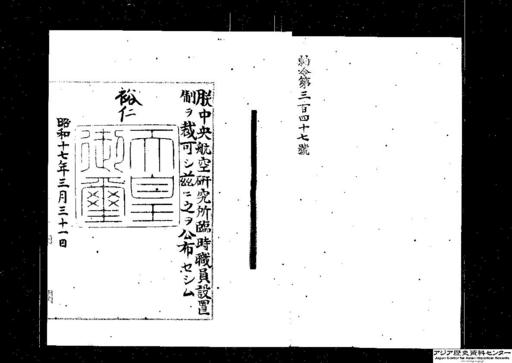 勅令第三百四十七號
朕中央航空研究所臨時職員設置
制ヲ裁可シ茲ニ之ヲ公布セシム
裕仁
天皇
御璽
昭和十七年三月三十一日
アジア歴史資料センター
Japan Center for Asian Historical Records